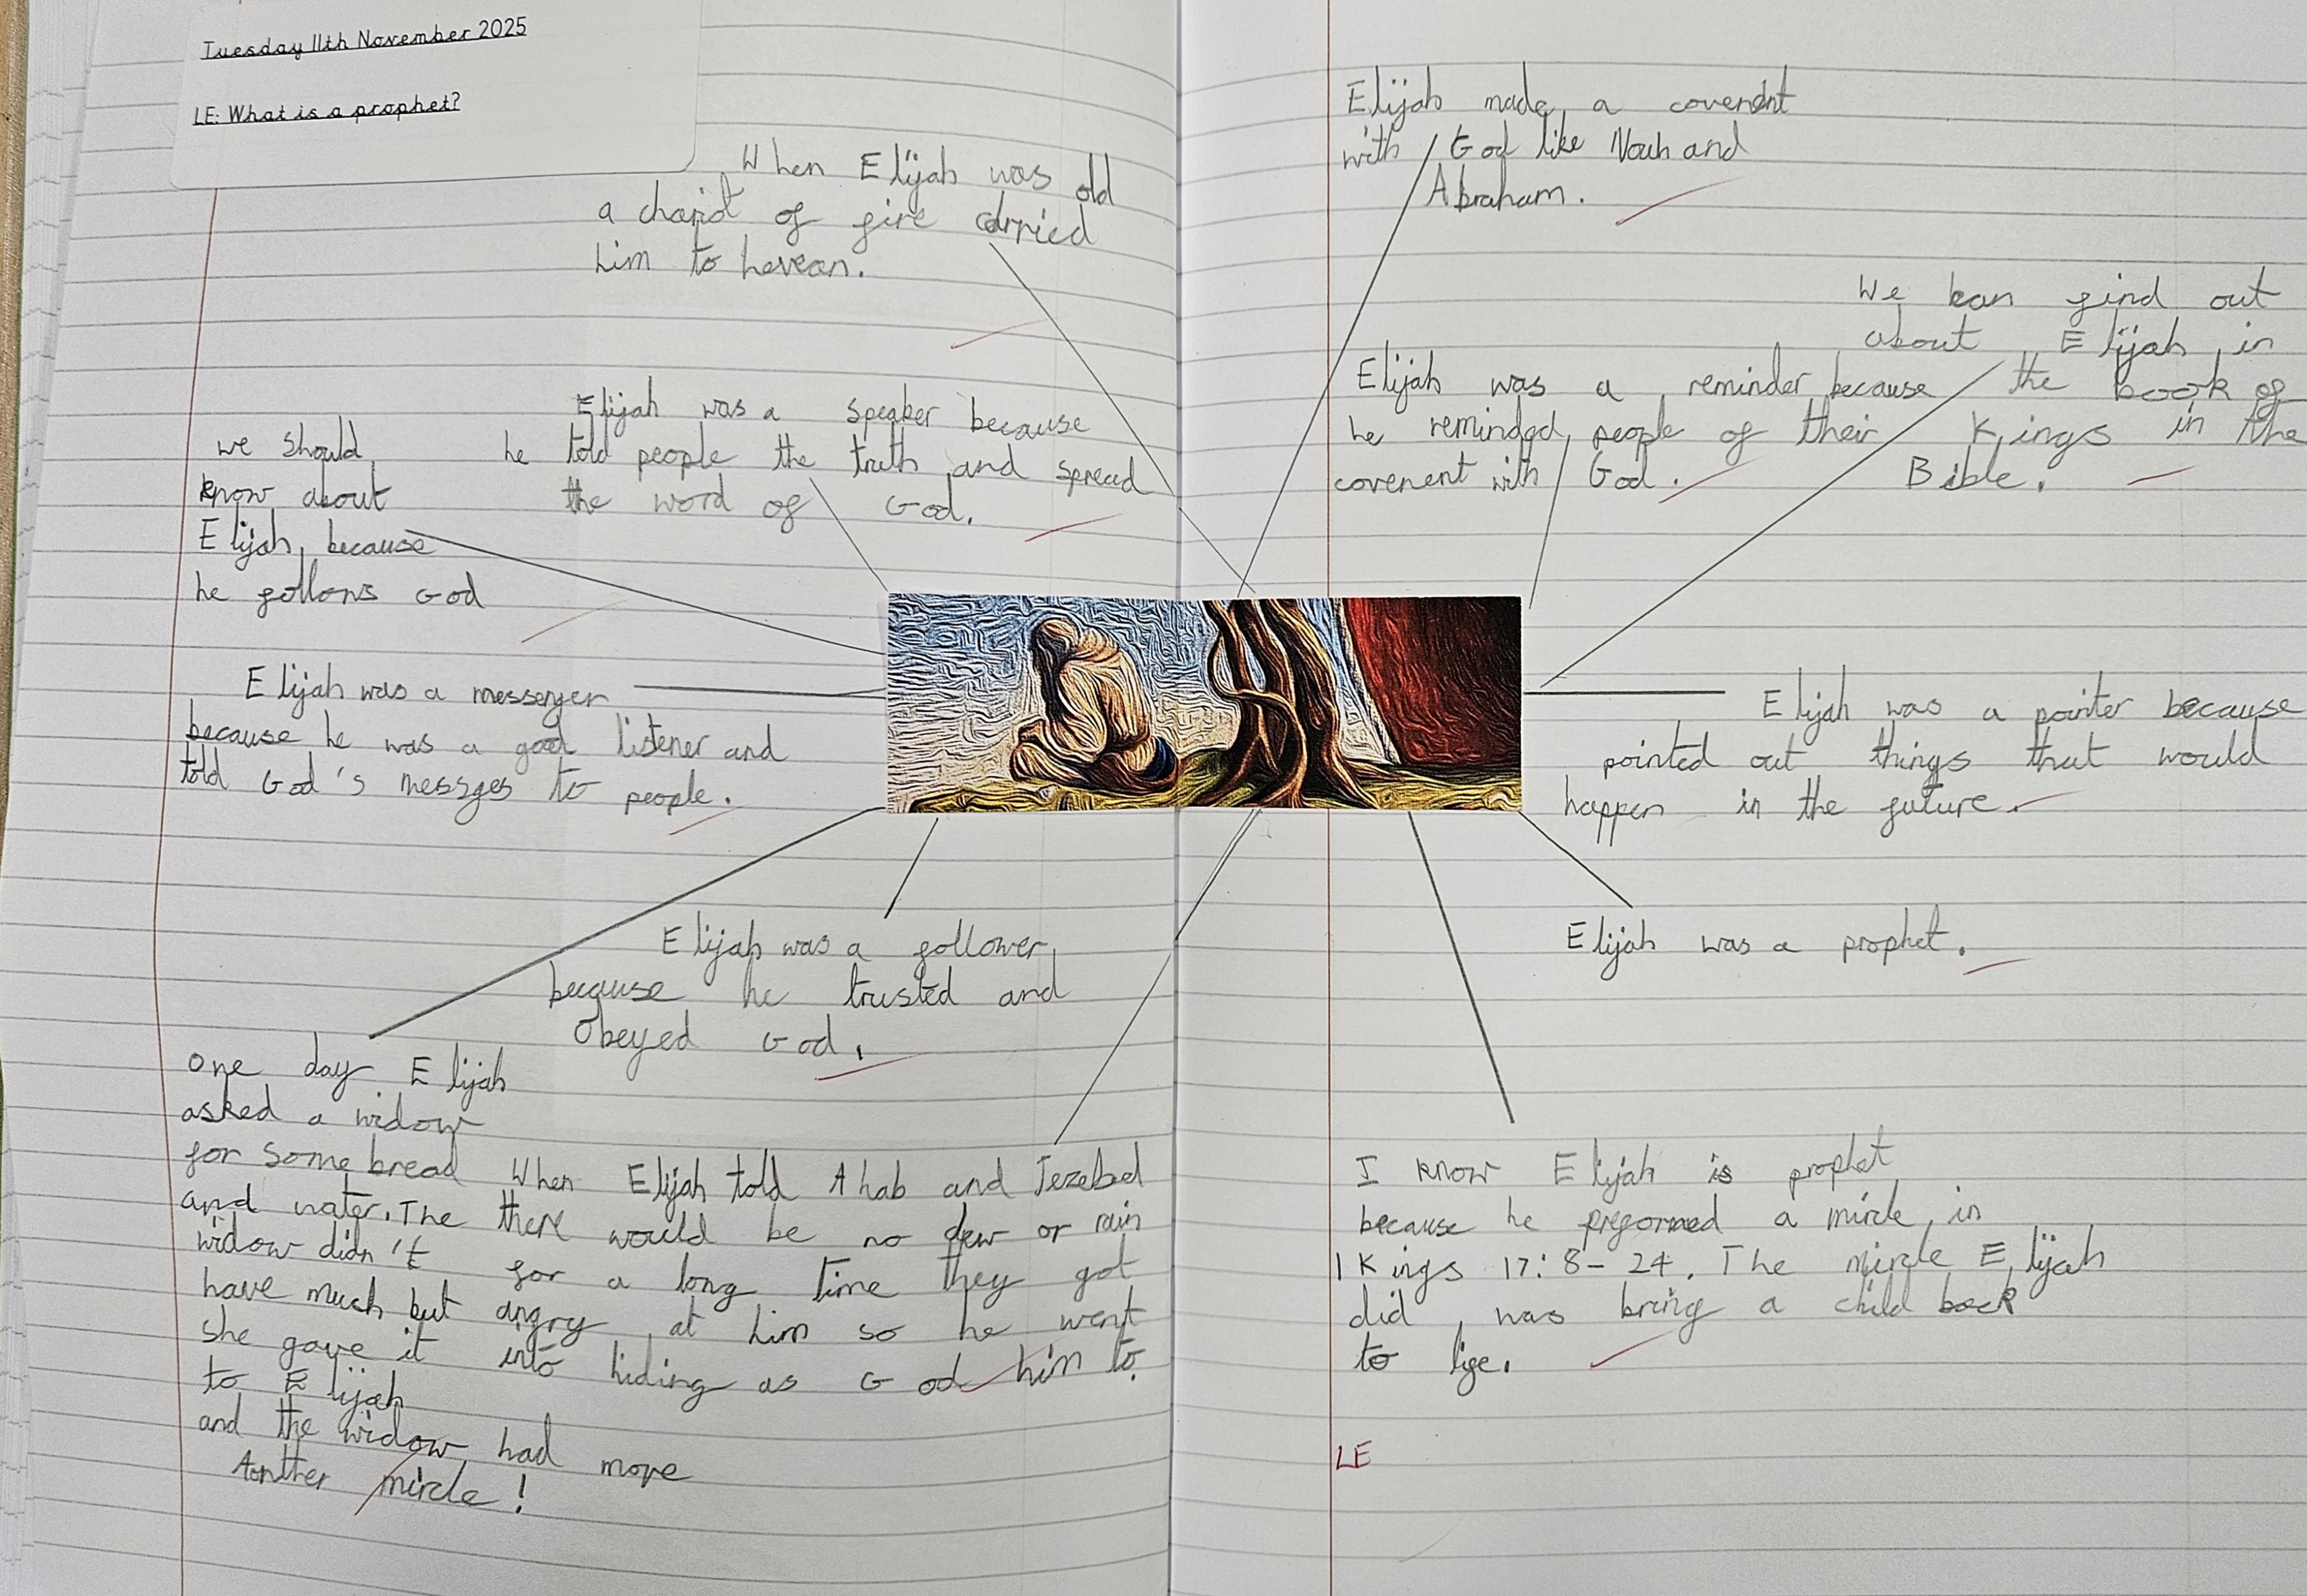 Tuesday 11th November 2025
LE: What is a prophet?
When Elijah was old
a chariot of fire carried
him to hevean.
Elijah was a speaker because
he told people the truth and spread
the word of God.
we should
know about
Elijah because
he follows God
Elijah was a messenger
because he was a good listener and
told God's messges to people.
Elijah was a follower
because he trusted and
Obeyed God.
One day Elijah
asked a widow
for some bread
and water. The
widow didn't
have much but
she gave it
to Elijah
and the widow had more
Aonther mircle!
When Elijah told Ahab and Jezebel
there would be no dew or rain
for a long time they got
angry at him so he went
into hiding as God him to.
Elijah made a covenent
with God like Noah and
Abraham.
We can find out
about Elijah in
the book of
Kings in the
Bible.
Elijah was a reminder because
he reminded people of their
covenent with God.
Elijah was a pointer because
pointed out things that would
happen in the future.
Elijah was a prophet.
I know Elijah is prophet
because he preformed a mircle in
1 Kings 17:8-24. The mircle Elijah
did was bring a child back
to life.
LE